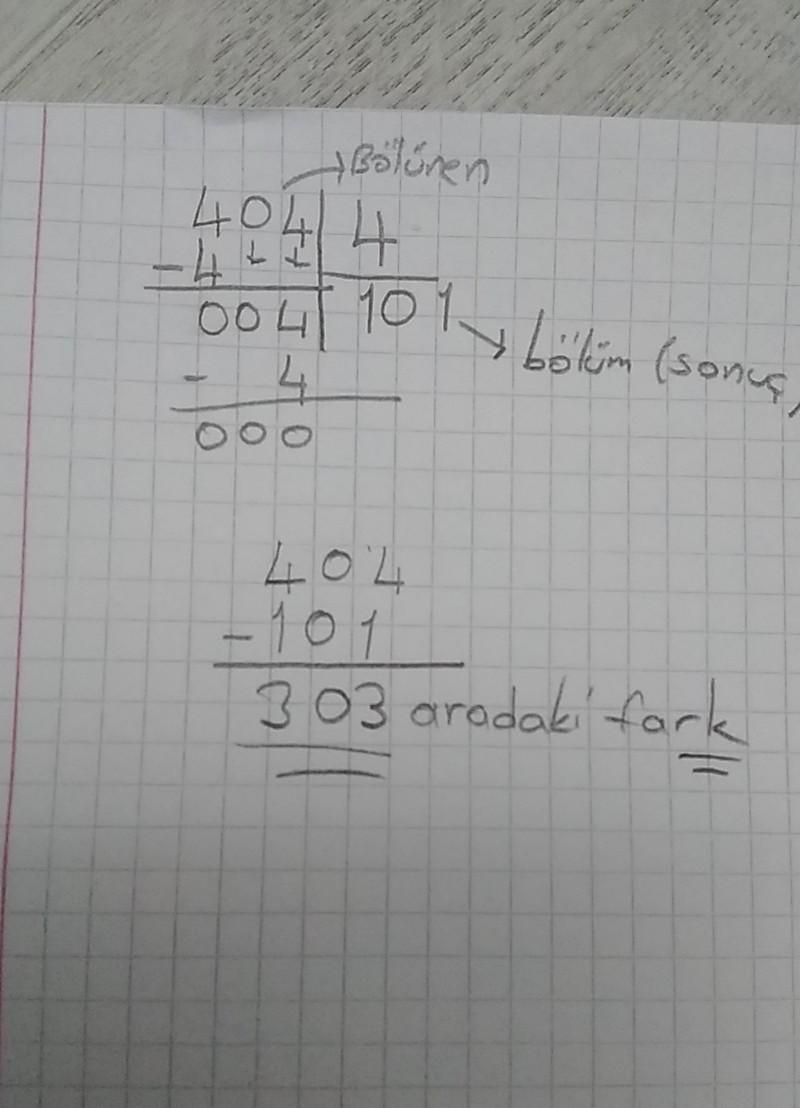 Bölünen
404 4
-4
004 101
bölüm (sonuç)
- 4
000
404
-101
303 aradaki fark